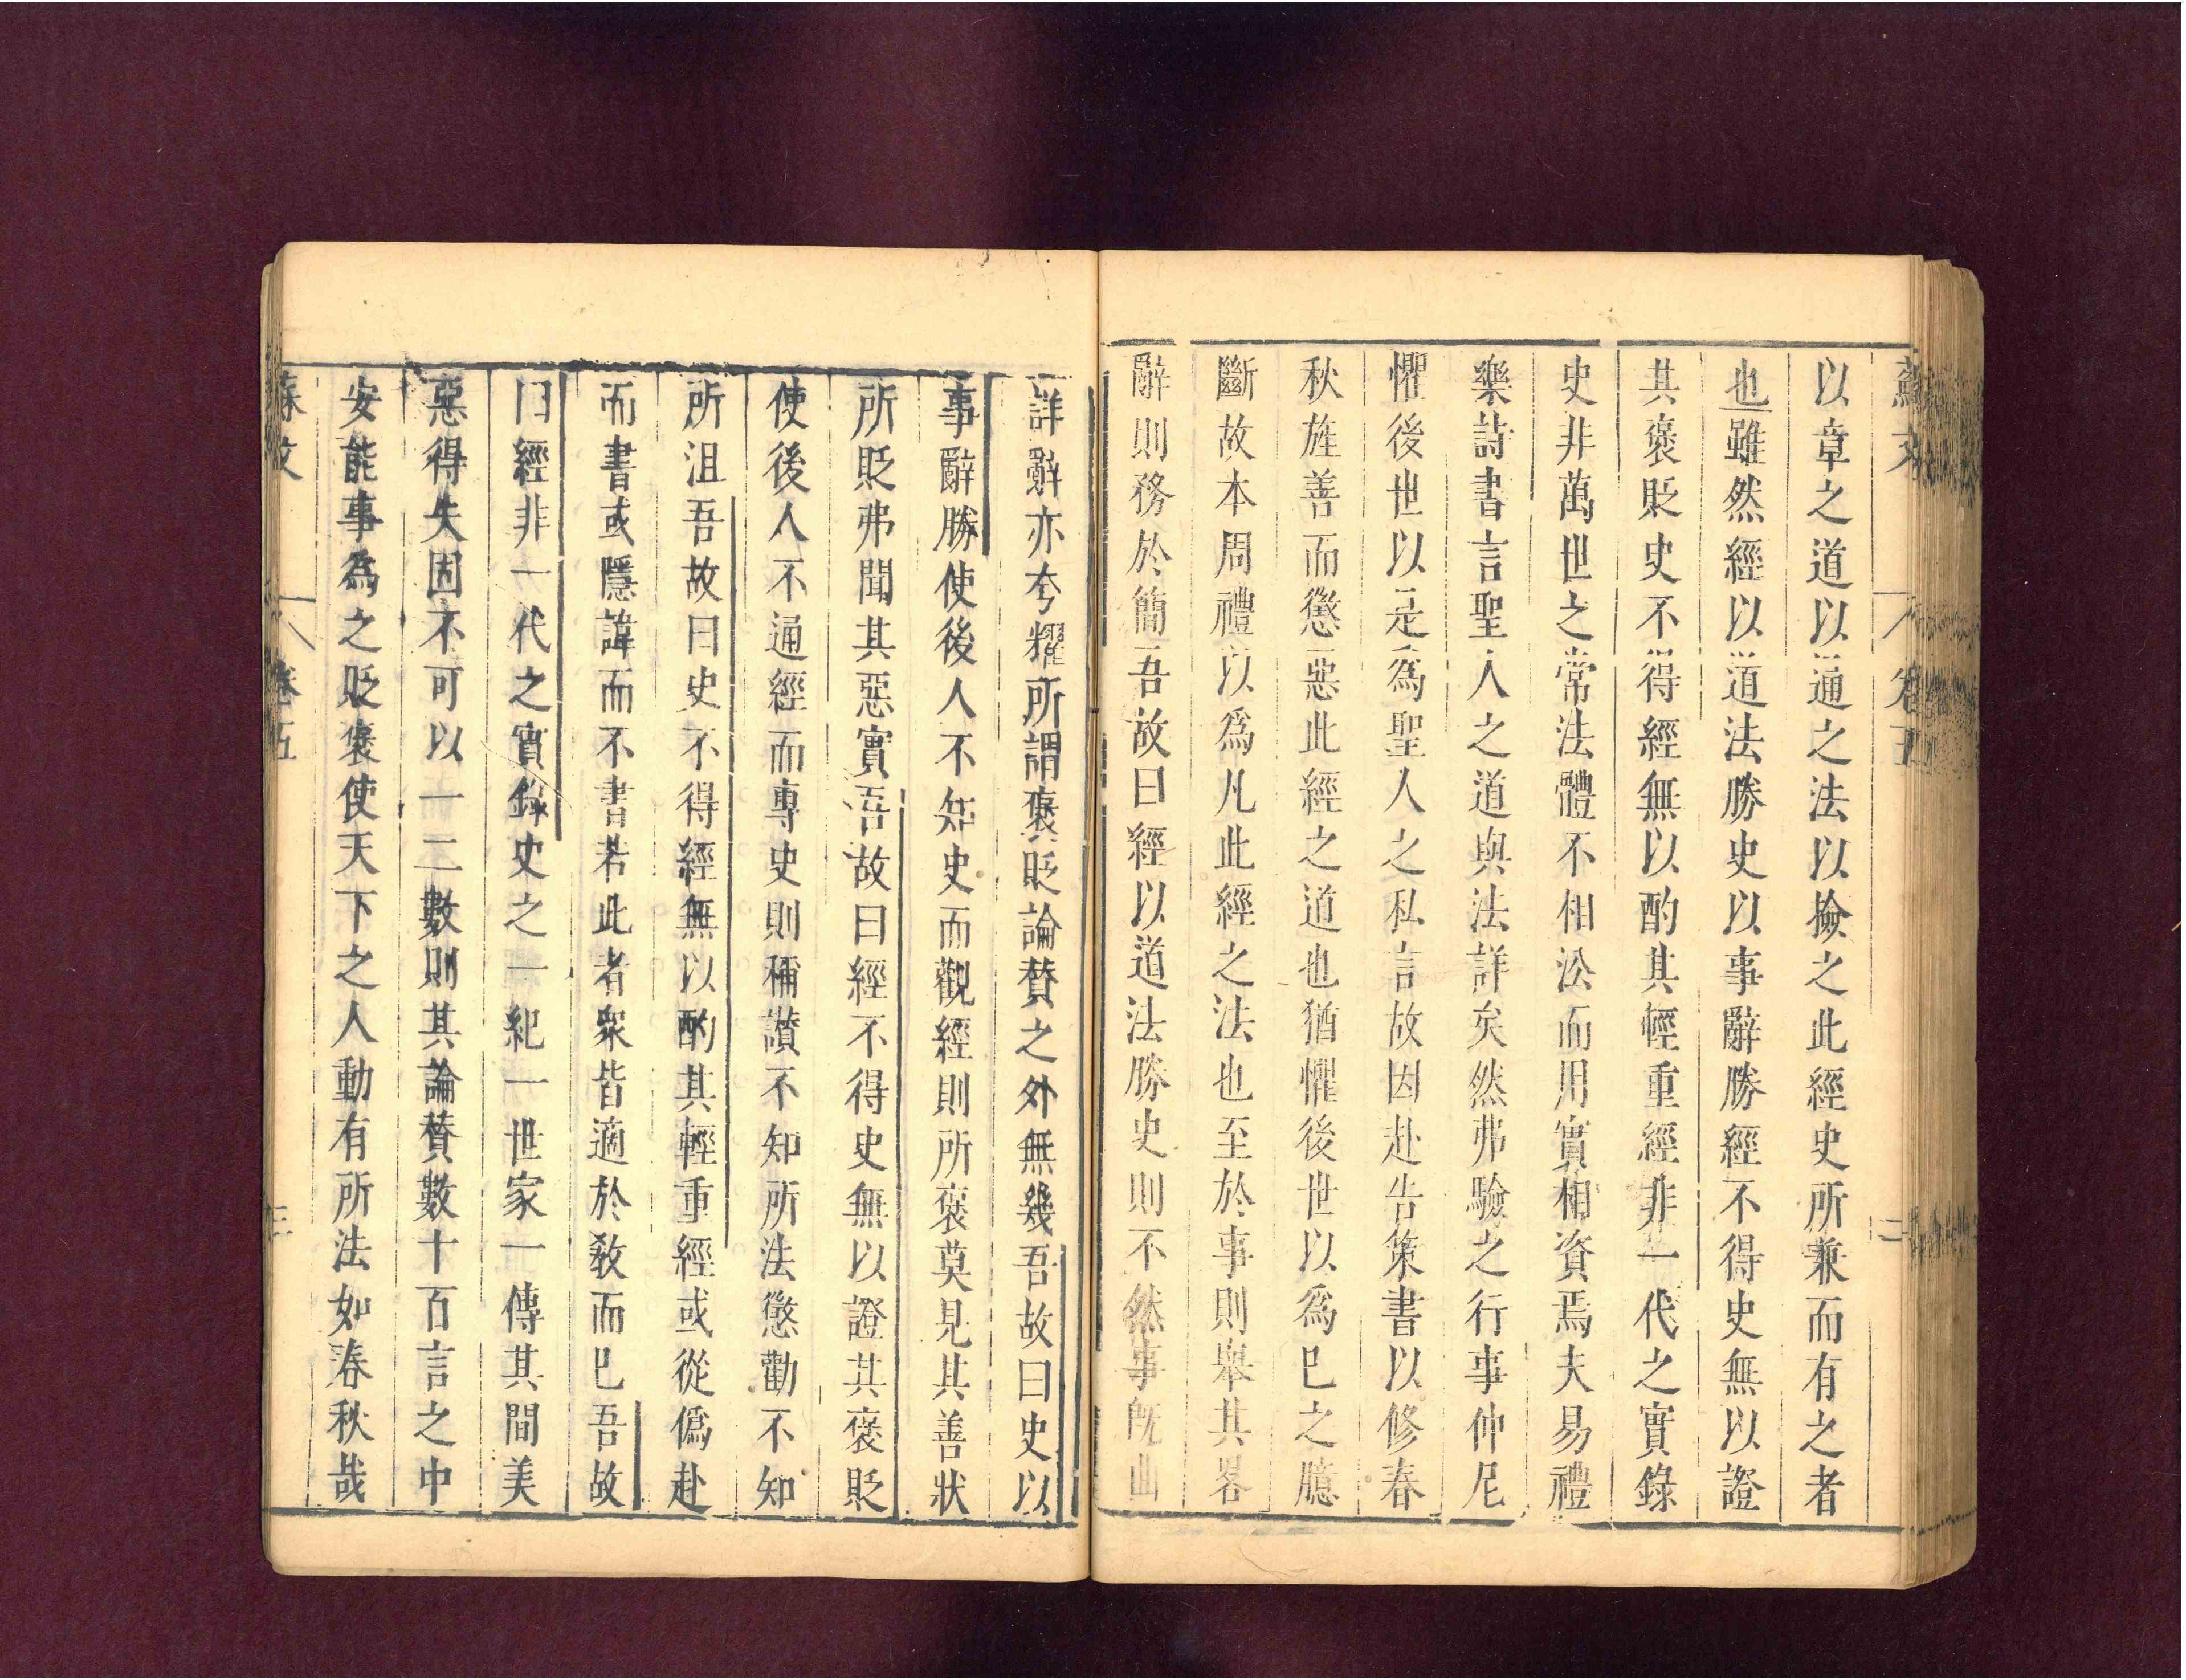 蘇文 卷五 二
以章之道以通之法以撿之此經史所兼而有之者
也雖然經以道法勝史以事辭勝經不得史無以證
其褒貶史不得經無以酌其輕重經非一代之實錄
史非萬世之常法體不相㳂而用實相資焉夫易禮
樂詩書言聖人之道與法詳矣然弗驗之行事仲尼
懼後世以是為聖人之私言故因赴告策書以修春
秋旌善而懲惡此經之道也猶懼後世以為己之臆
斷故本周禮以為凡此經之法也至於事則舉其畧
辭則務於簡吾故曰經以道法勝史則不然事既曲
詳辭亦夸耀所謂褒貶論賛之外無幾吾故曰史以
事辭勝使後人不知史而觀經則所褒莫見其善狀
所貶弗聞其惡實吾故曰經不得史無以證其褒貶
使後人不通經而專史則稱讃不知所法懲勸不知
所沮吾故曰史不得經無以酌其輕重經或從僞赴
而書或隱諱而不書若此者衆皆適於教而已吾故
曰經非一代之實錄史之一紀一世家一傳其間美
惡得失固不可以一二數則其論賛數十百言之中
安能事為之貶褒使天下之人動有所法如春秋哉
蘇文 卷五 三